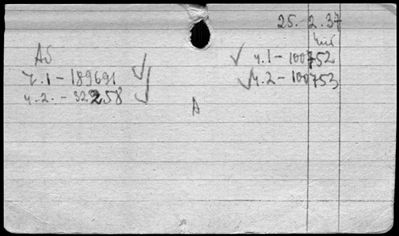 25. 2. 37
AS
ч.1 - 189691
ч.2. - 32258
ч.1 - 100752
ч.2 - 100753
A